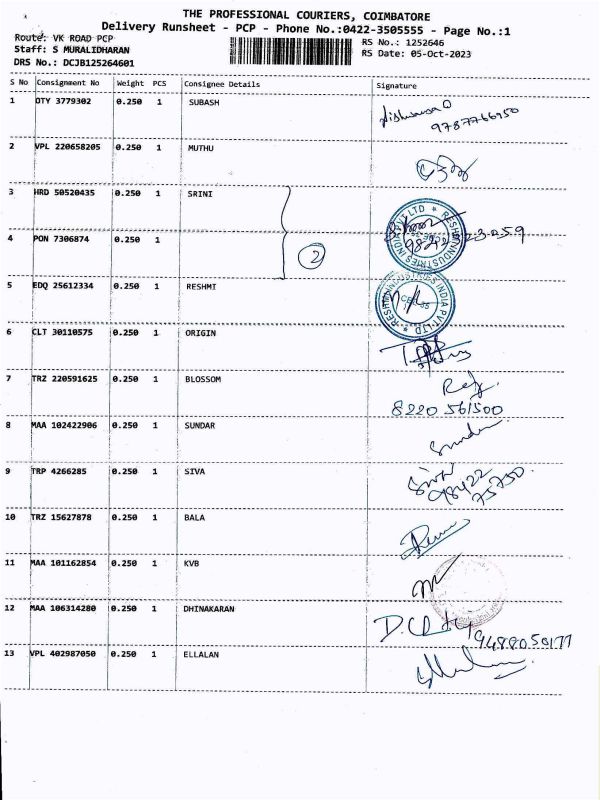 THE PROFESSIONAL COURIERS, COIMBATORE
Delivery Runsheet - PCP - Phone No.:0422-3505555 - Page No.:1
Route: VK ROAD PCP
RS No.: 1252646
Staff: S MURALIDHARAN
RS Date: 05-Oct-2023
DRS No.: DCJB125264601
S No Consignment No Weight PCS Consignee Details Signature
1 OTY 3779302 0.250 1 SUBASH
9787766950
2 VPL 220658205 0.250 1 MUTHU
3 HRD 50520435 0.250 1 SRINI
4 PON 7306874 0.250 1
2
RESHMI INDUSTRIES INDIA PVT LTD
5 EDQ 25612334 0.250 1 RESHMI
RESHMI INDUSTRIES INDIA PVT LTD
6 CLT 30110575 0.250 1 ORIGIN
7 TRZ 220591625 0.250 1 BLOSSOM
8220 561500
8 MAA 102422906 0.250 1 SUNDAR
9 TRP 4266285 0.250 1 SIVA
98422
75750
10 TRZ 15627878 0.250 1 BALA
11 MAA 101162854 0.250 1 KVB
12 MAA 106314280 0.250 1 DHINAKARAN
9488050177
13 VPL 402987050 0.250 1 ELLALAN